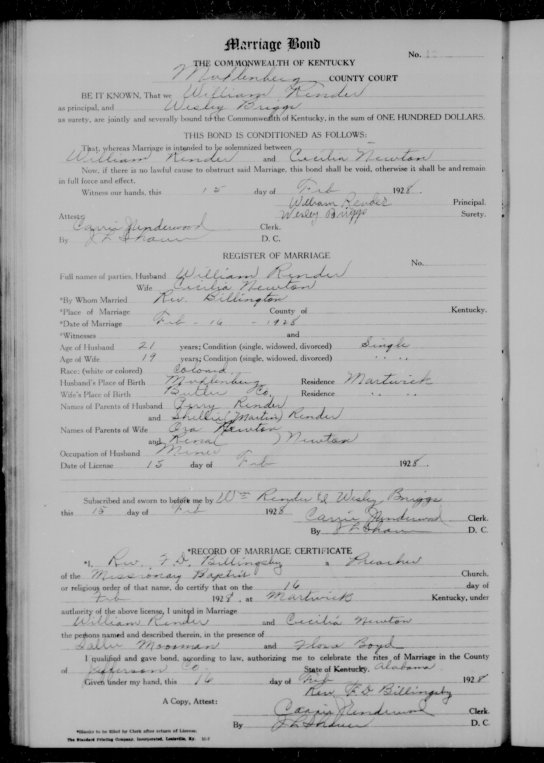 Marriage Bond
No.
THE COMMONWEALTH OF KENTUCKY
Muhlenberg COUNTY COURT
BE IT KNOWN, That we William Render
as principal, and Wesley Briggs
as surety, are jointly and severally bound to the Commonwealth of Kentucky, in the sum of ONE HUNDRED DOLLARS.
THIS BOND IS CONDITIONED AS FOLLOWS:
That, whereas Marriage is intended to be solemnized between
William Render and Cecilia Newton
Now, if there is no lawful cause to obstruct said Marriage, this bond shall be void, otherwise it shall be and remain
in full force and effect.
Witness our hands, this 15 day of Feb 1928.
William Render Principal.
Attest: Wesley Briggs Surety.
Carrie Underwood Clerk.
By D. C.
REGISTER OF MARRIAGE
No.
Full names of parties, Husband William Render
Wife Cecilia Newton
*By Whom Married Rev. Billington
*Place of Marriage County of Kentucky.
*Date of Marriage Feb - 16 - 1928
*Witnesses and
Age of Husband 21 years; Condition (single, widowed, divorced) Single
Age of Wife 19 years; Condition (single, widowed, divorced) " "
Race: (white or colored) Colored
Husband's Place of Birth Muhlenberg Residence Martwick
Wife's Place of Birth Butler Co. Residence " "
Names of Parents of Husband Render
and (Martin) Render
Names of Parents of Wife Newton
and Newton
Occupation of Husband Miner
Date of License 15 day of Feb 1928.
Subscribed and sworn to before me by Wm Render & Wesley Briggs
this 15 day of Feb 1928
Carrie Underwood Clerk.
By D. C.
*RECORD OF MARRIAGE CERTIFICATE
*I, Rev. F. D. Billingsby a Preacher
of the Missionary Baptist Church,
or religious order of that name, do certify that on the 16 day of
Feb 1928, at Martwick Kentucky, under
authority of the above license, I united in Marriage
William Render and Cecilia Newton
the persons named and described therein, in the presence of
Sallie Moorman and Flora Boyd
I qualified and gave bond, according to law, authorizing me to celebrate the rites of Marriage in the County
of Jefferson Co. State of Kentucky. Alabama
Given under my hand, this 16 day of Feb 1928
Rev. F. D Billingsby
A Copy, Attest:
Carrie Underwood Clerk.
By D. C.
*Blanks to be filled by Clerk after return of License.
The Standard Printing Company, Incorporated, Louisville, Ky.